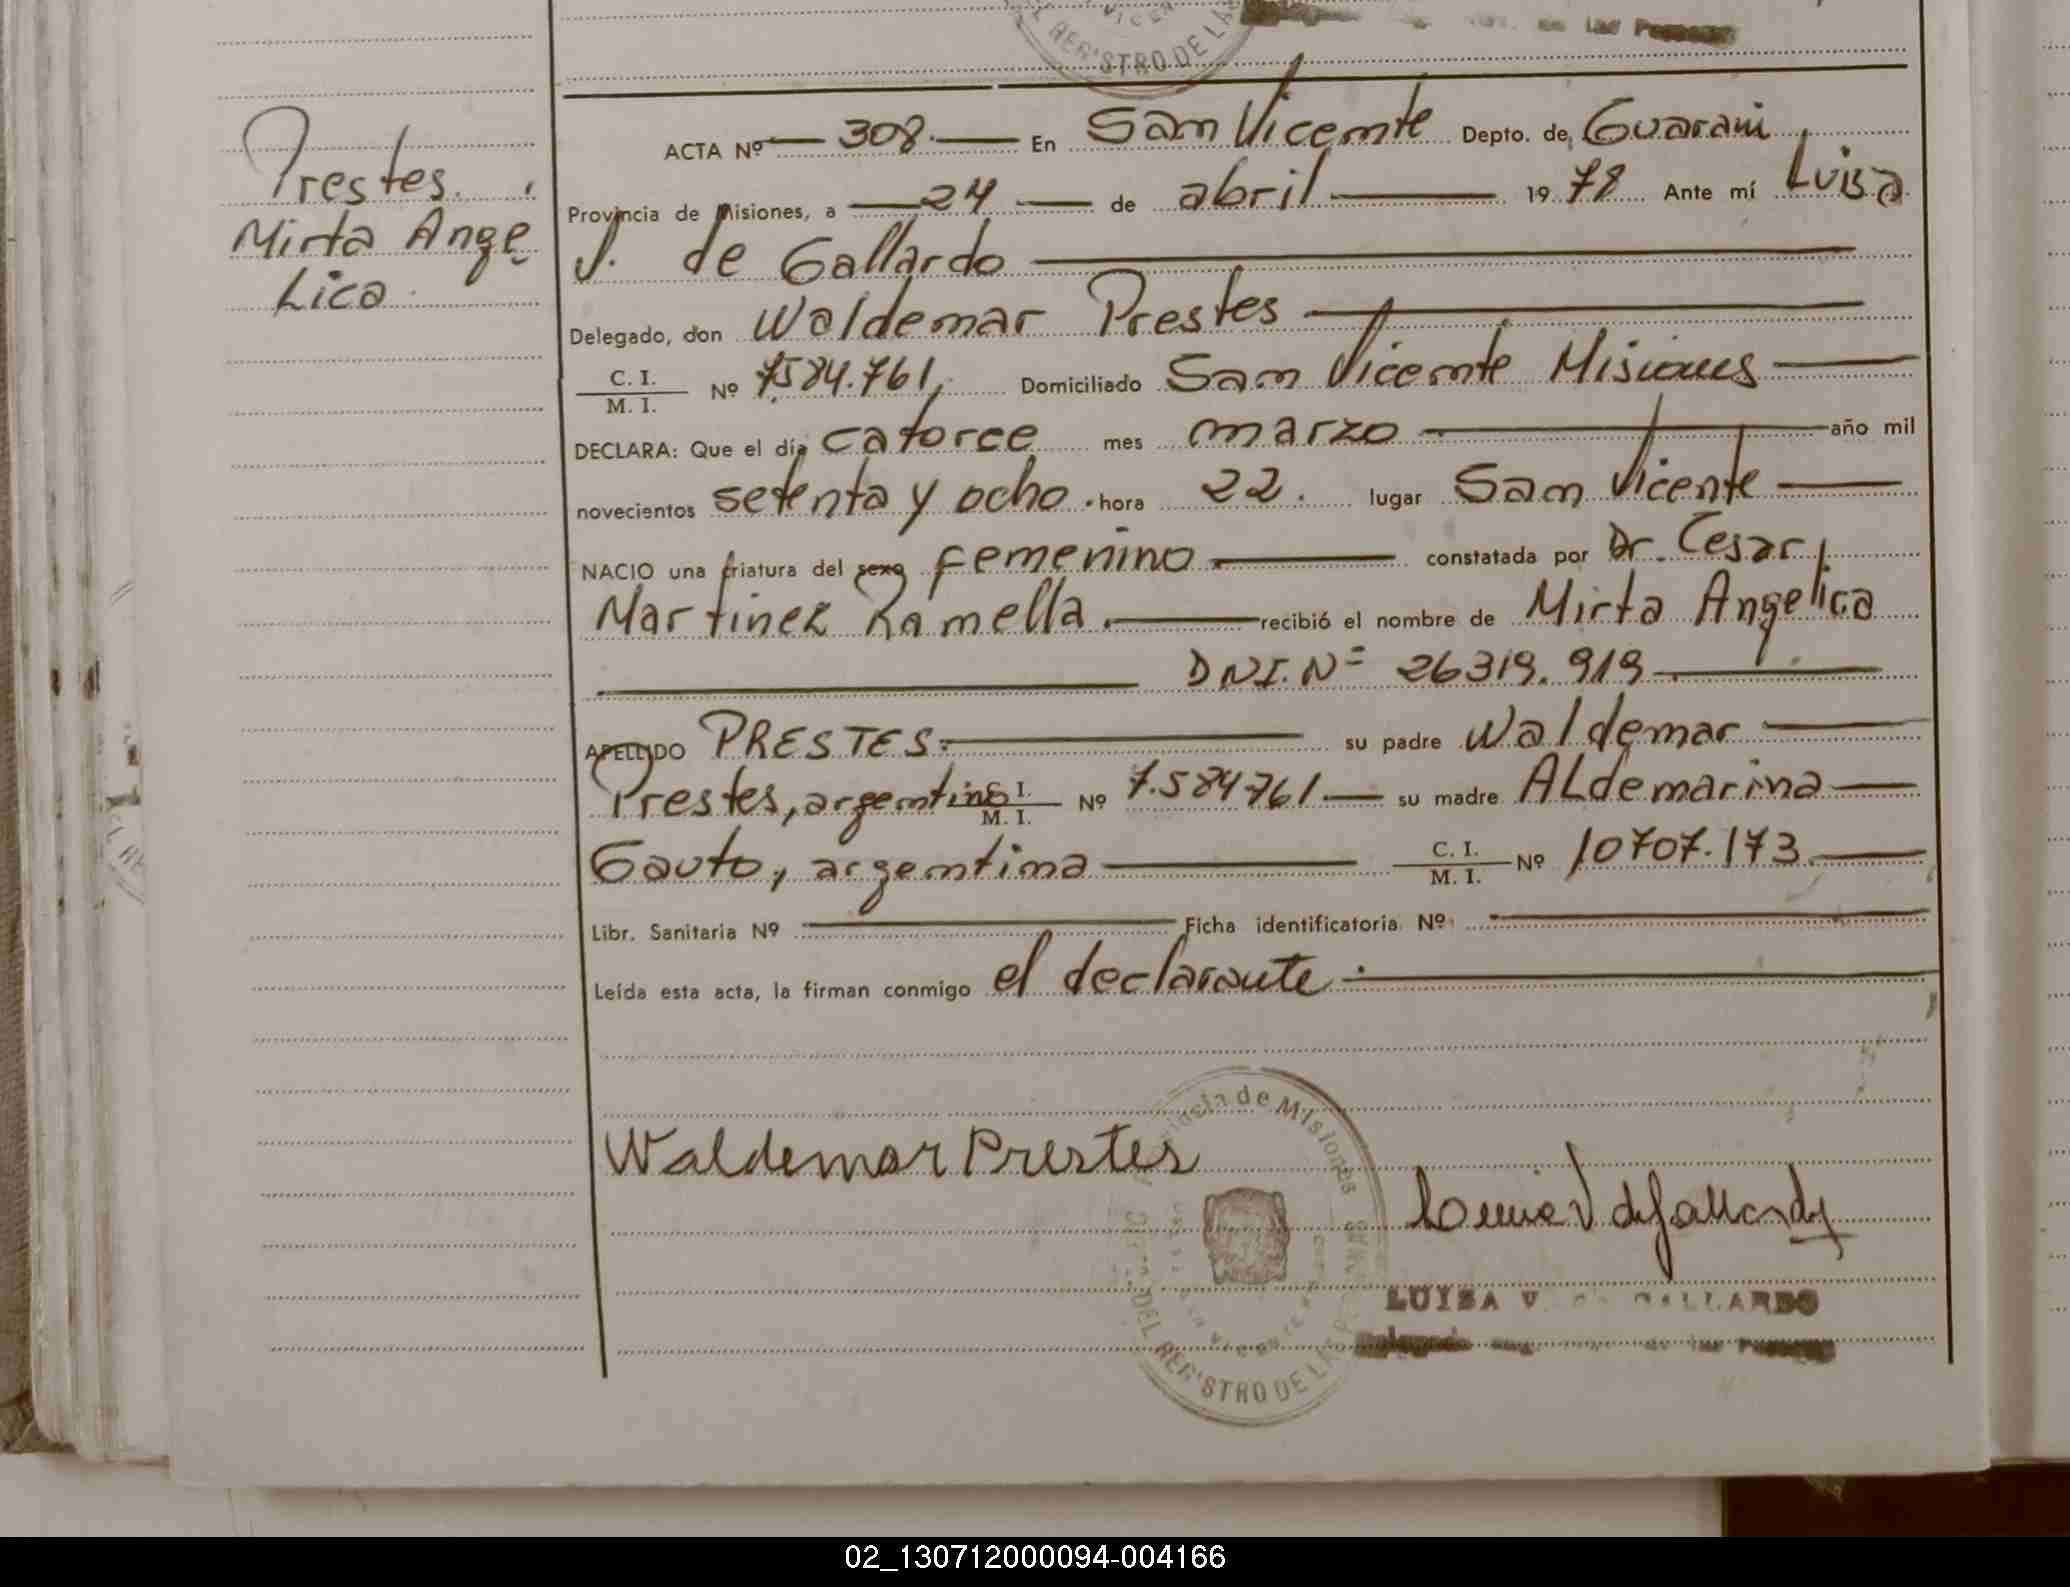 VICEN
REGISTRO DE LA
de las Personas
Prestes.
Mirta Ange
Lica.
ACTA Nº 308. En San Vicente Depto. de Guarani
Provincia de Misiones, a 24 de abril 1978 Ante mí Luisa
V. de Gallardo
Delegado, don Waldemar Prestes
C. I. / M. I. Nº 7584.761, Domiciliado San Vicente Misiones
DECLARA: Que el día catorce mes marzo año mil
novecientos setenta y ocho. hora 22. lugar San Vicente
NACIO una criatura del sexo femenino constatada por Dr. Cesar
Martinez Ramella. recibió el nombre de Mirta Angelica
DNI. Nº 26319.919
APELLIDO PRESTES. su padre Waldemar
Prestes, argentino C. I. / M. I. Nº 7.584761 su madre ALdemarina
Gauto, argentina C. I. / M. I. Nº 10707.173.
Libr. Sanitaria Nº Ficha identificatoria Nº
Leída esta acta, la firman conmigo el declarante.
Provincia de Misiones
Waldemar Prestes
Luisa V de Gallardo
LUISA V. DE GALLARDO
DEL REGISTRO DE LAS PERSONAS
Delegada de las Personas
02_130712000094-004166